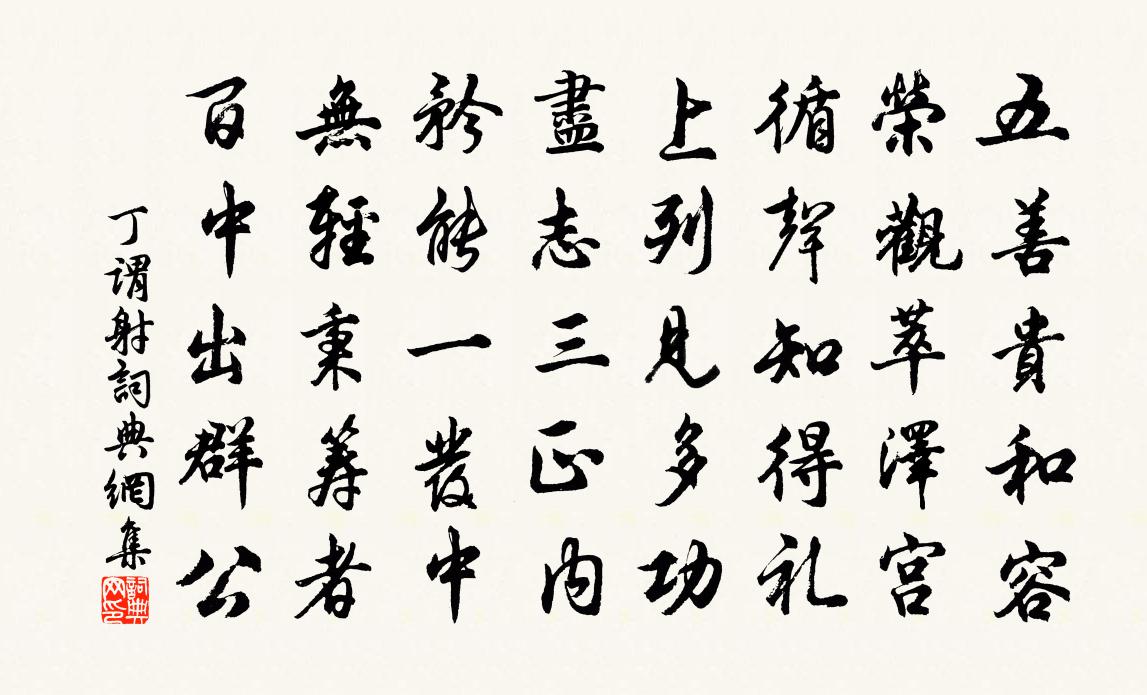 五善貴和容
榮觀萃澤宮
循聲知得礼
上列見多功
盡志三正内
矜能一發中
無輕秉筹者
百中出群公
丁謂射詞典網集
詞典网印